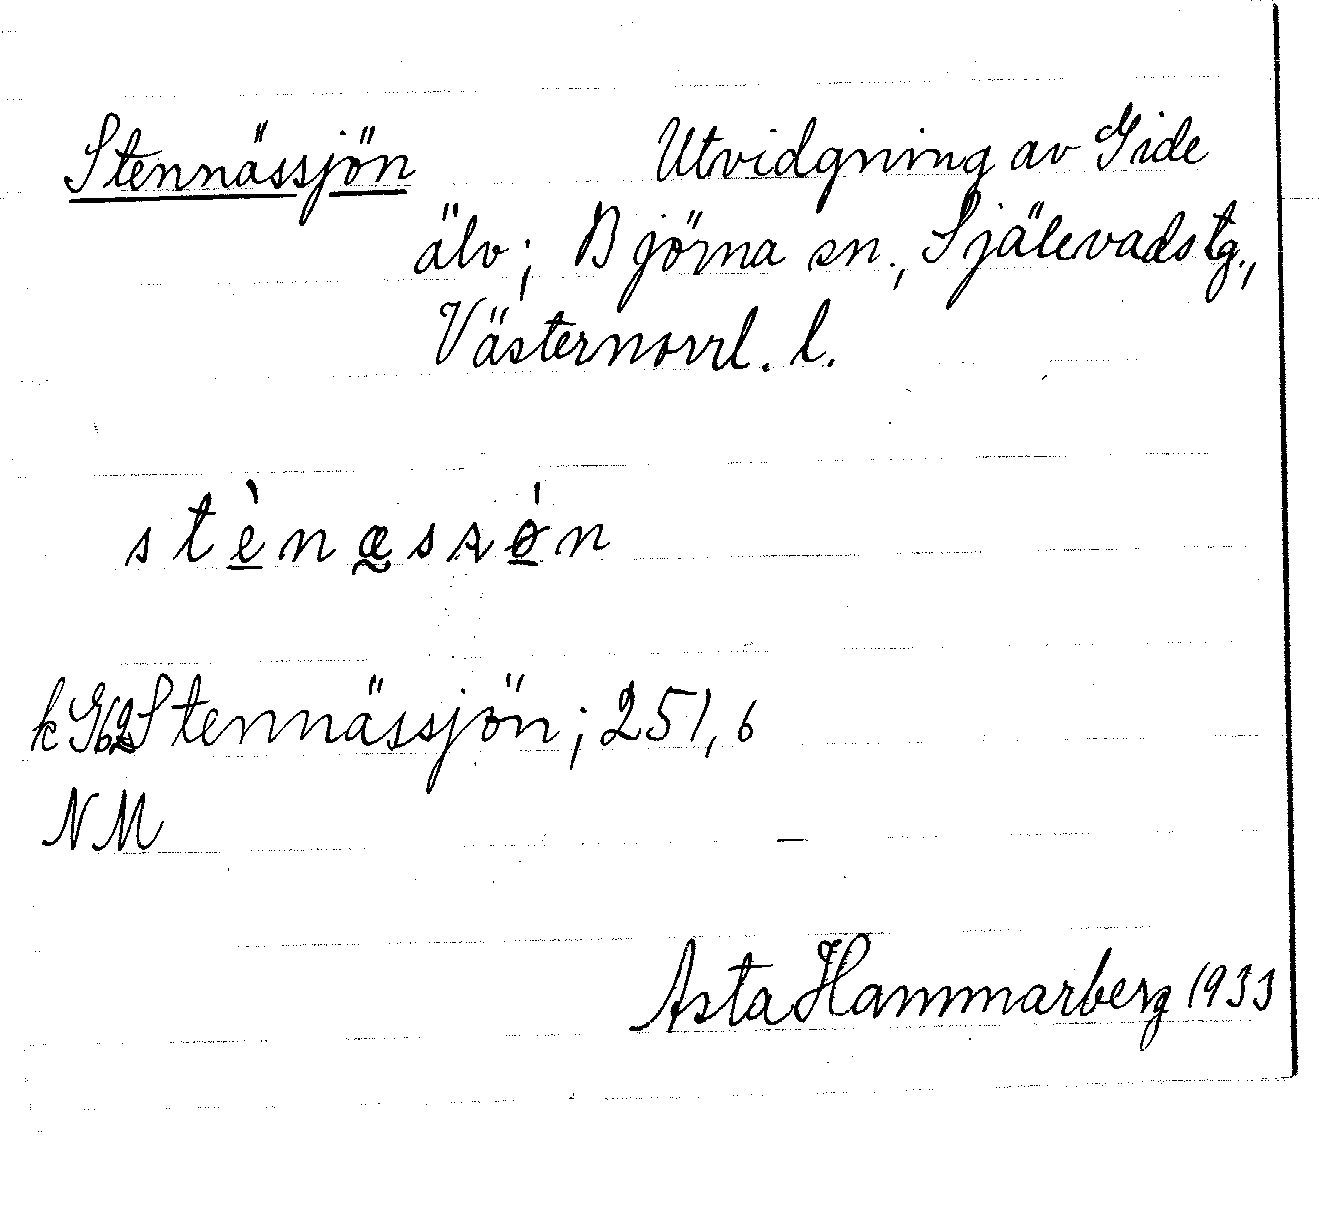 Stennässjön Utvidgning av Gide
älv; Björna sn., Själevads tg.,
Västernorrl. l.
stènæssǿn
k G 62 Stennässjön; 251,6
NM –
Asta Hammarberg 1933